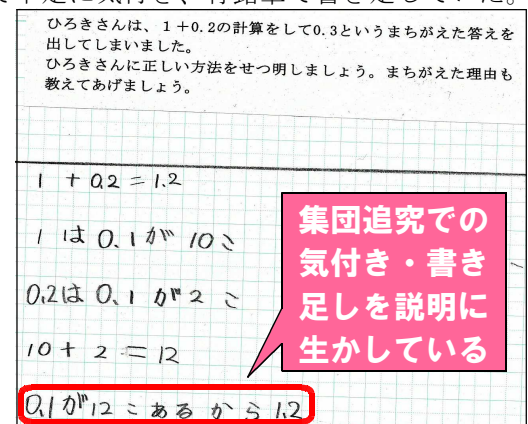 ひろきさんは、１＋0.2の計算をして0.3というまちがえた答えを
出してしまいました。
ひろきさんに正しい方法をせつ明しましょう。まちがえた理由も
教えてあげましょう。
1 + 0.2 = 1.2
1 は 0.1 が 10 こ
0.2は 0.1 が 2 こ
10 + 2 = 12
0.1が12こあるから1.2
集団追究での
気付き・書き
足しを説明に
生かしている